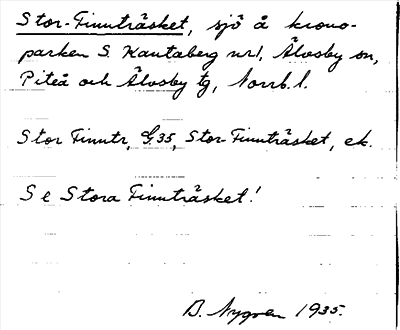 Stor-Finnträsket, sjö å krono-
parken S. Kautaberg nr 1, Älvsby sn,
Piteå och Älvsby tg, Norrb. l.
Stor Finntr, G.35, Stor Finnträsket, ek.
Se Stora Finnträsket!
B. Nygren 1935.